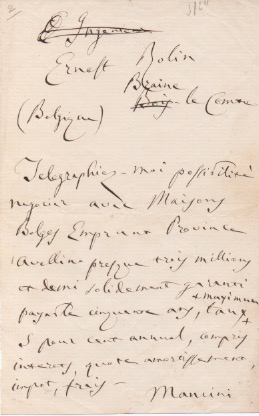 Ernest Bolin
Braine
le Comte
(Belgique)
Telegraphiez-moi possibilité
negocier avec Maisons
Belges Emprunt Province
Avellino presque trois millions
et demi solidement garanti
payable cinquante ans, taux
maximum
5 pour cent annual, compris
interets, quote amortissement,
impot, frais -
Mancini